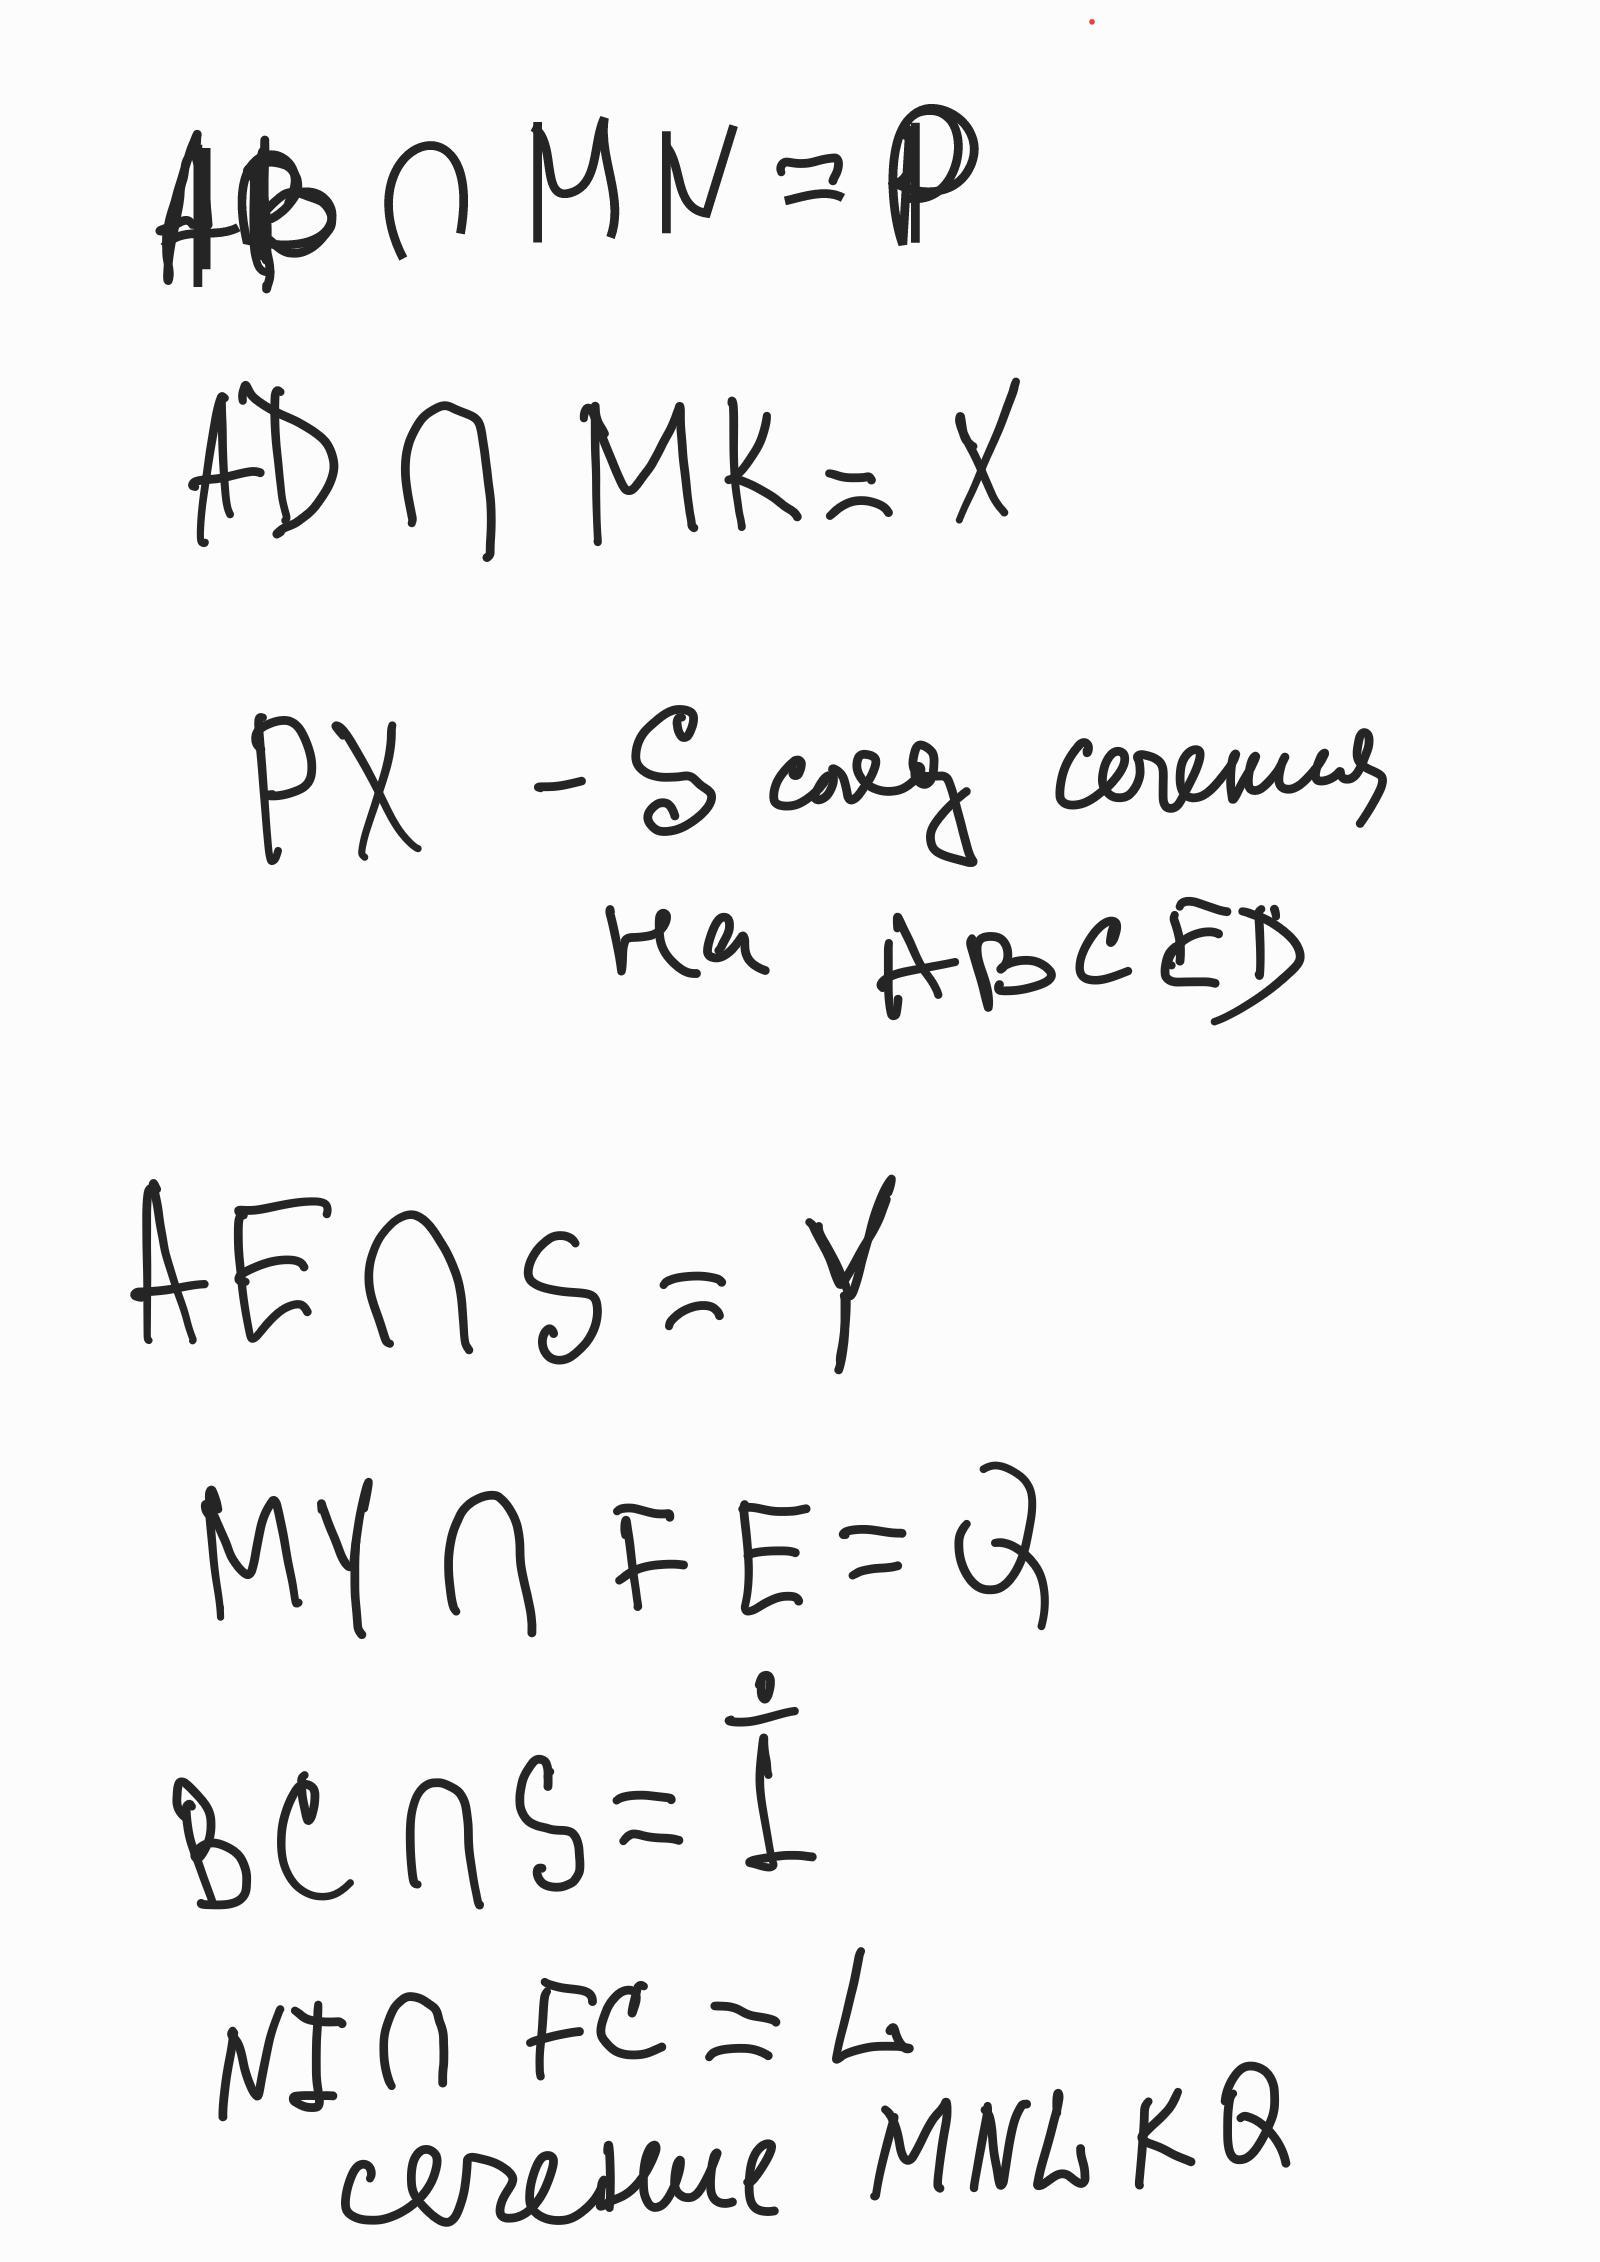 AB ∩ MN = P
AD ∩ MK = X
PX - S след сечения
на ABCED
AE ∩ S = Y
MY ∩ FE = Q
BC ∩ S = I
NI ∩ FC = L
сечение MNLKQ